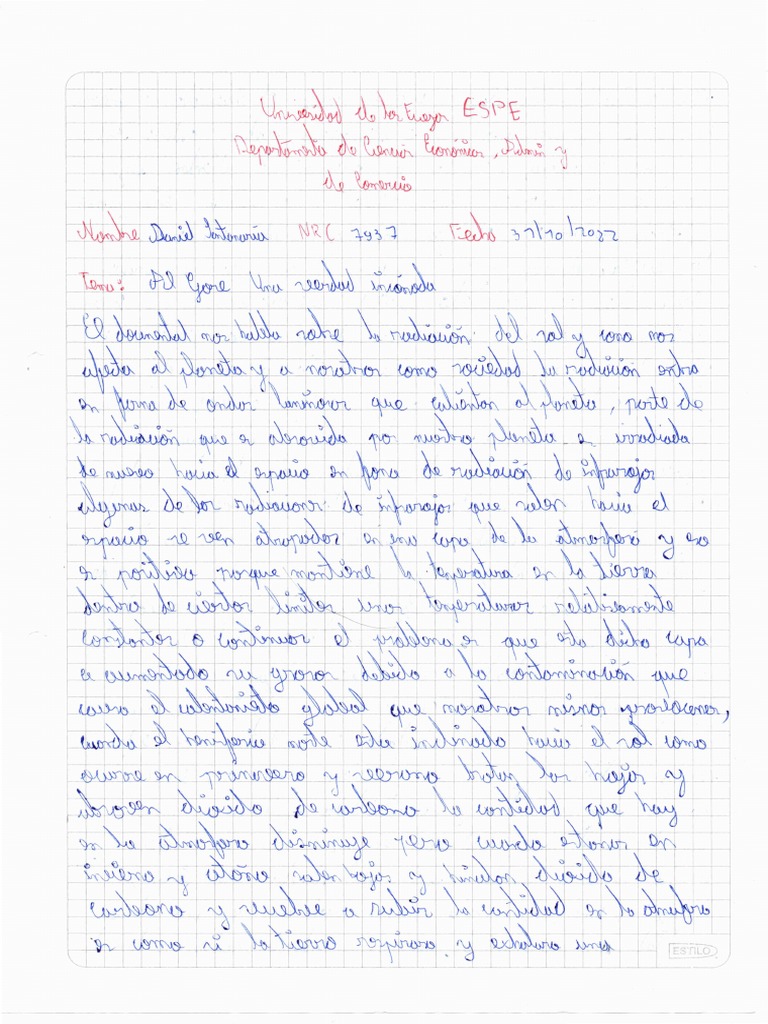 Universidad de las Fuerzas ESPE
Departamento de Ciencias Económicas, Admin y
de Comercio
Nombre Daniel Santamaría NRC 7937 Fecha 31/10/2022
Tema: Al Gore Una verdad incómoda
El documental nos habla sobre la radiación del sol y como nos
afecta al planeta y a nosotros como sociedad la radiación entra
en forma de ondas luminosas que calientan al planeta, parte de
la radiación que es absorvida por nuestro planeta es irradiada
de nuevo hacia el espacio en forma de radiación de infrarojos
algunas de las radiaciones de infrarojos que salen hacia el
espacio se ven atrapados en una capa de la atmosfera y eso
es positivo porque mantiene la temperatura en la tierra
dentro de ciertos limites unas temperaturas relativamente
constantes o continuas el problema es que esta dicha capa
a aumentado su grosor debido a la contaminación que
causa el calentamiento global que nosotros mismos provocamos,
cuando el hemisferio norte esta inclinado hacia el sol como
ocurre en primavera y verano brotan las hojas y
absorven dioxido de carbono la cantidad que hay
en la atmosfera disminuye pero cuando estamos en
invierno y otoño salen hojas y exhalan dioxido de
carbono y vuelve a subir la cantidad en la atmosfera
es como si la tierra respirara y exhalara una
ESTILO